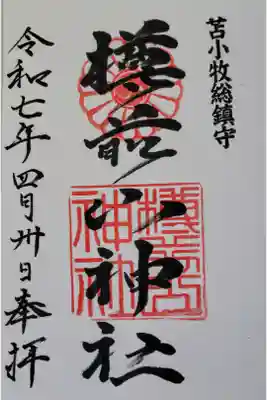 苫小牧総鎮守
樽前山神社
樽前山
神社
令和七年四月卅日奉拝